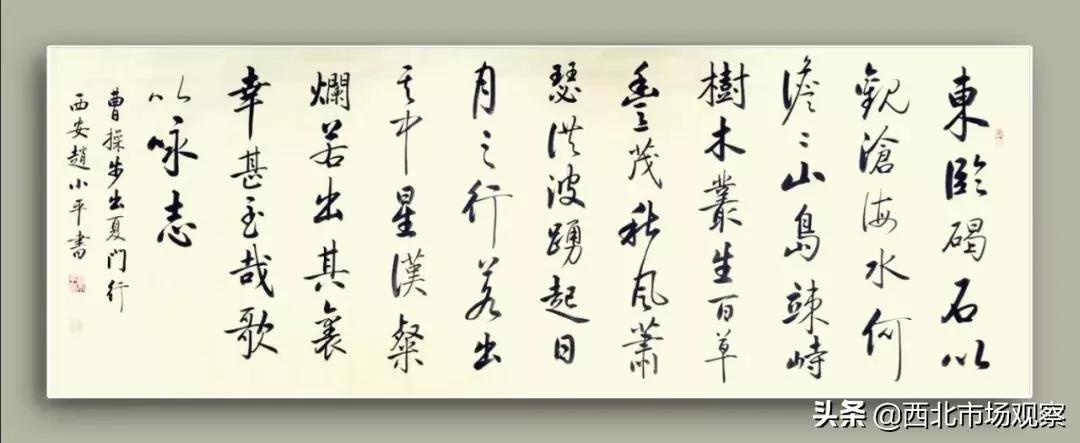 東臨碣石以
觀滄海水何
澹〻山島竦峙
樹木叢生百草
豐茂秋風蕭
瑟洪波踴起日
月之行若出
其中星漢粲
爛若出其裏
幸甚至哉歌
以咏志
曹操步出夏门行
西安趙小平書
头条 @西北市场观察